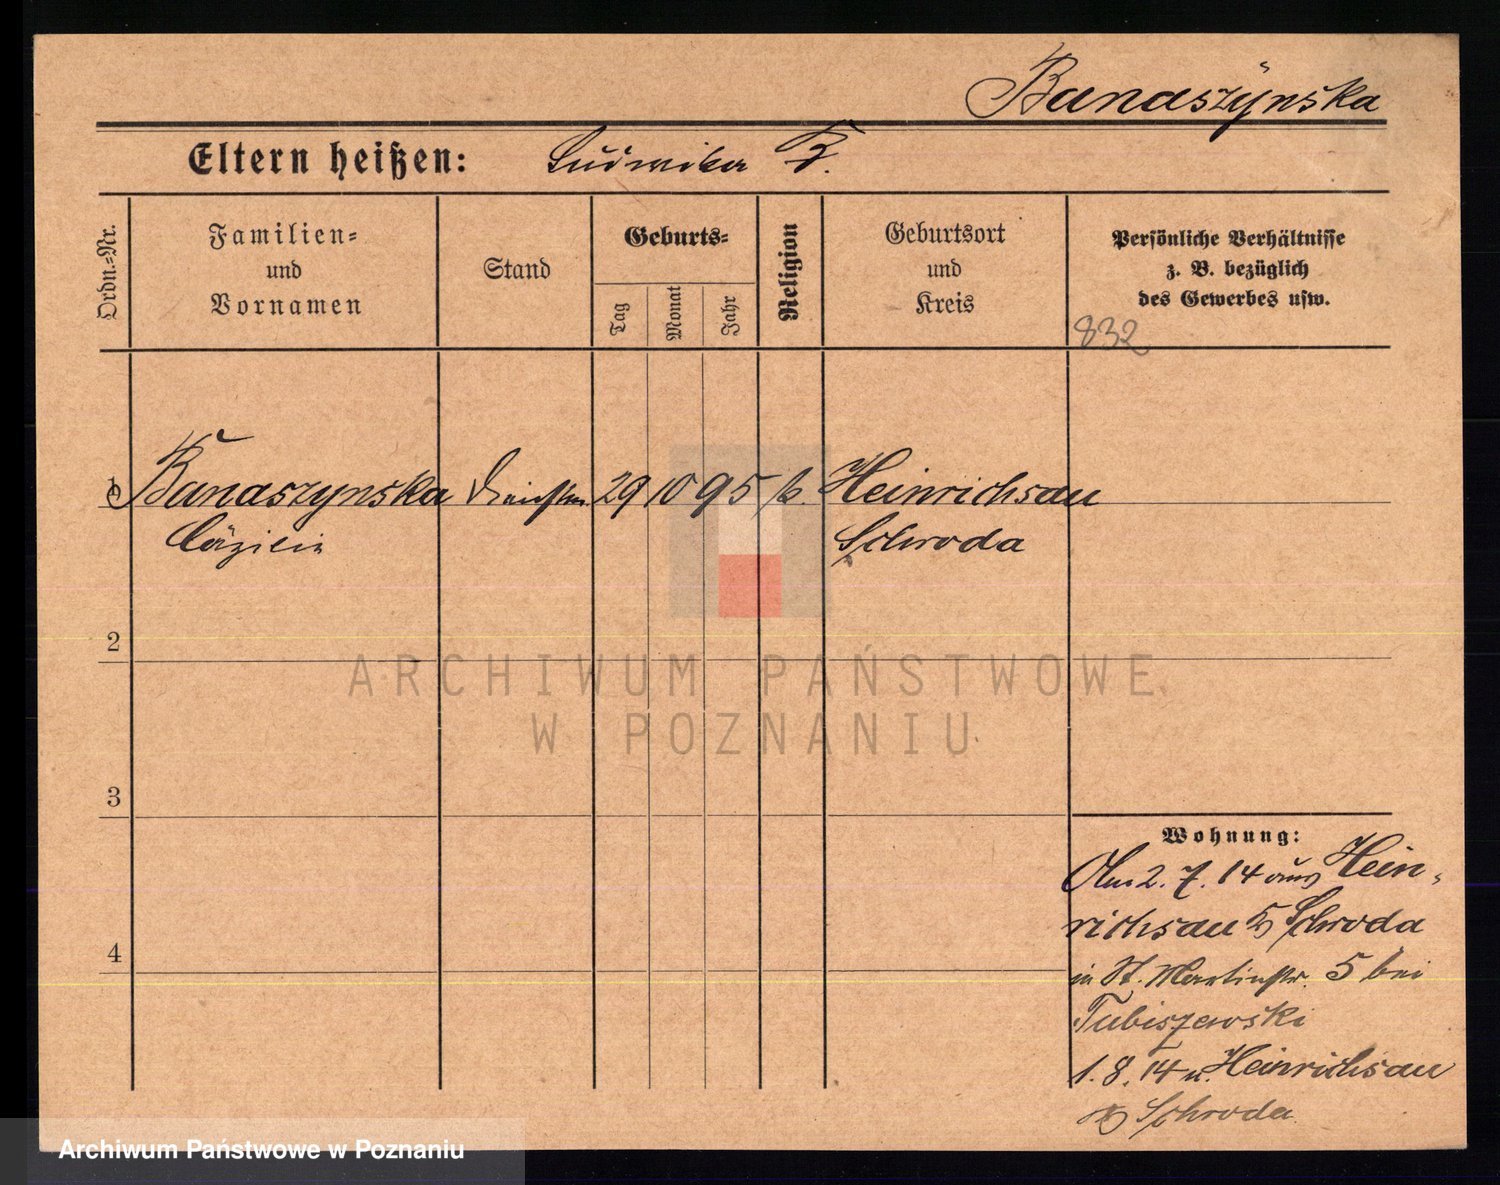 Banaszÿnska
Eltern heißen: Ludwika B.
Ordn.=Nr.
Familien=
und
Vornamen
Stand
Geburts=
Tag
Monat
Jahr
Religion
Geburtsort
und
Kreis
Persönliche Verhältnisse
z. B. bezüglich
des Gewerbes usw.
832
1 Banaszynska 29 10 95 k. Heinrichsau
Cäzilia Schroda
2
ARCHIWUM PAŃSTWOWE
W POZNANIU
3
Wohnung:
Am 2. 7. 14 aus Hein-
richsau Schroda
4
in St. Martinstr. 5 bei
Tubiszewski
1. 8. 14 n. Heinrichsau
Schroda
Archiwum Państwowe w Poznaniu